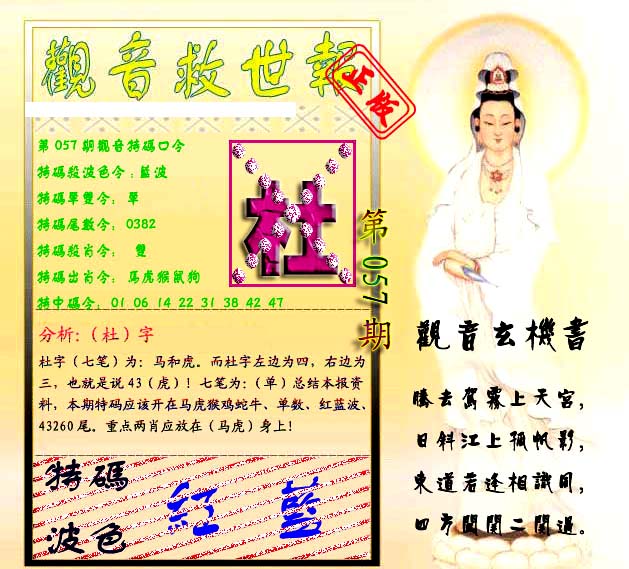 觀音救世報
正版
第057期觀音特碼口令
特碼殺波色令：藍波
特碼單雙令： 單
特碼尾數令： 0382
特碼殺肖令： 雙
特碼出肖令： 馬虎猴鼠狗
特中碼令： 01 06 14 22 31 38 42 47
杜
第057期
分析:（杜）字
杜字（七笔）为：马和虎。而杜字左边为四，右边为
三，也就是说43（虎）！七笔为：（单）总结本报资
料，本期特码应该开在马虎猴鸡蛇牛、单数、红蓝波、
43260尾。重点两肖应放在（马虎）身上！
特碼
波色
紅 藍
觀音玄機書
騰去駕霧上天宮，
日斜江上孤帆影，
東道若逢相識問，
四方關關二關過。